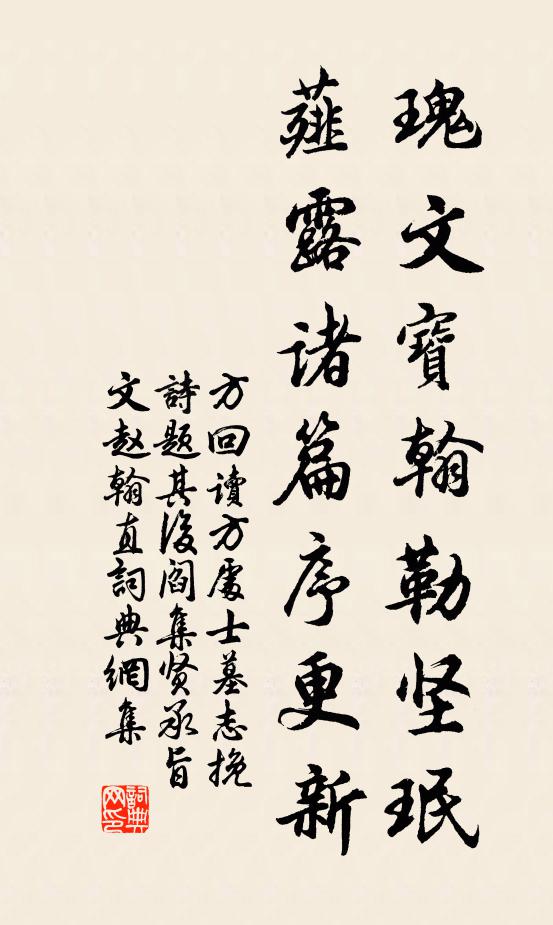 瑰文寶翰勒坚珉
薤露诸篇序更新
方回讀方處士墓志挽
詩題其後阎集贤承旨
文赵翰直詞典網集
詞典
网印